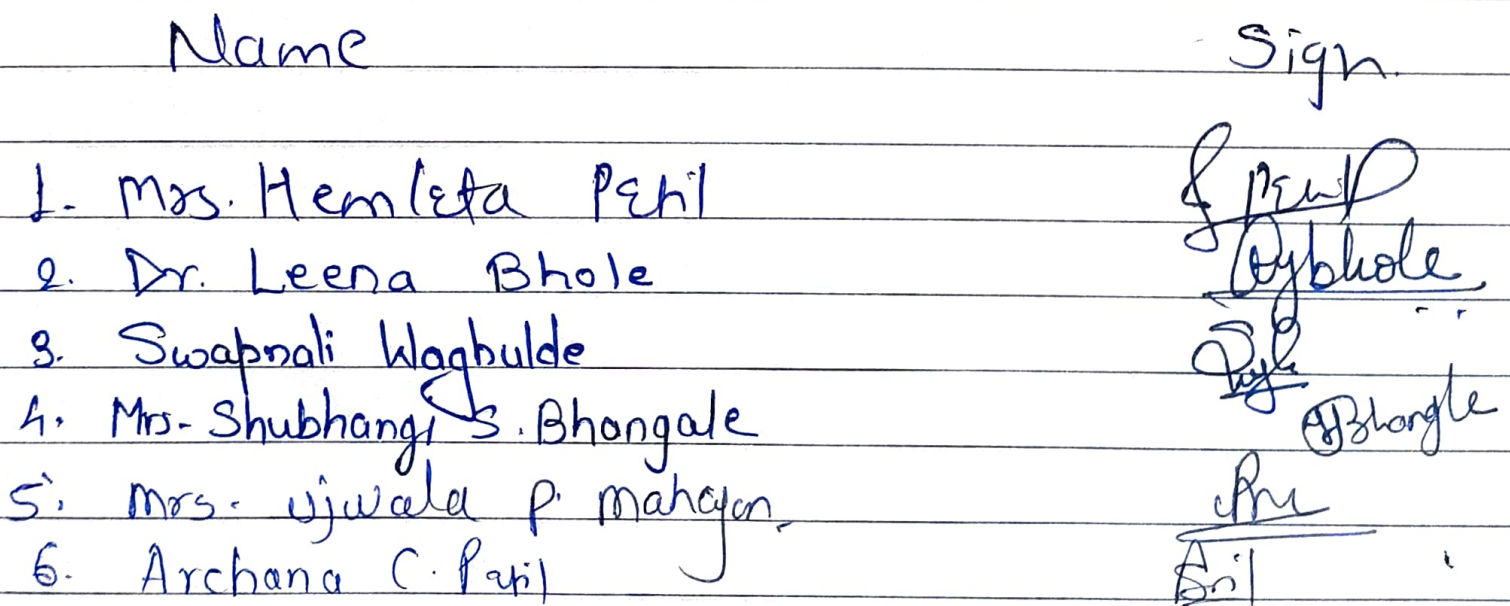 Name Sign.
1. Mrs. Hemlata Patil
2. Dr. Leena Bhole Lybhole
3. Swapnali Waghulde
4. Mrs. Shubhangi S. Bhangale Bhangle
5. Mrs. Ujwala P. Mahajan
6. Archana C. Patil